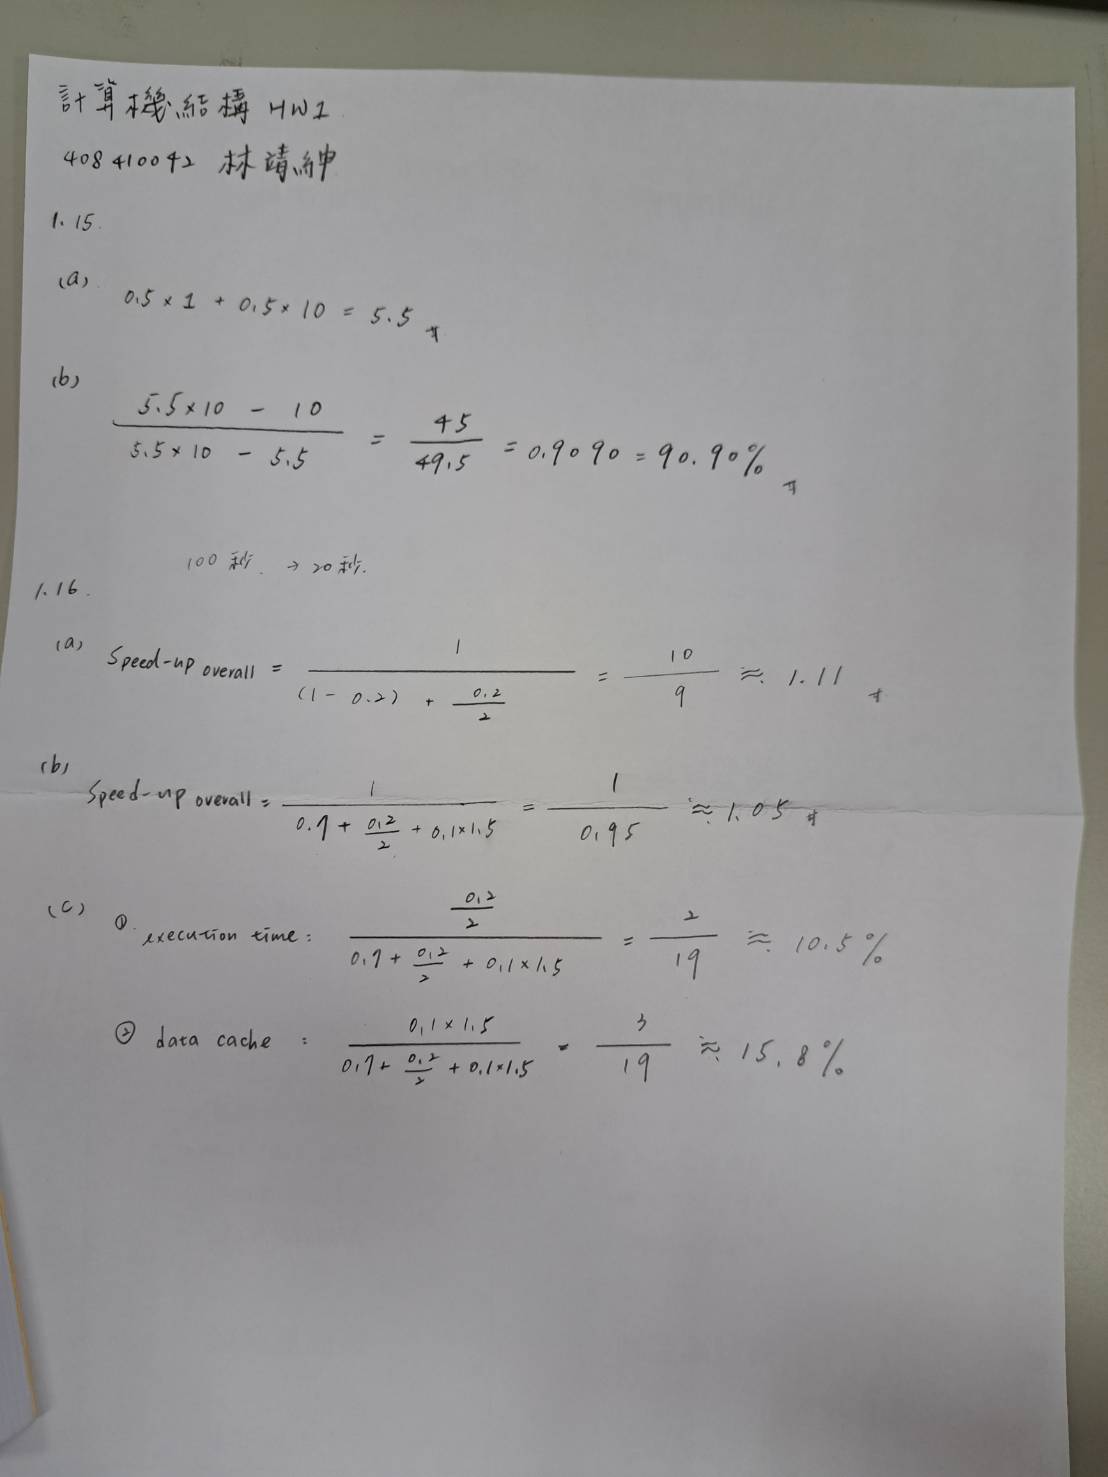 計算機結構 HW1
408410042 林靖紳
1.15.
(a) 0.5 × 1 + 0.5 × 10 = 5.5 #
(b) (5.5×10 - 10) / (5.5×10 - 5.5) = 45/49.5 = 0.9090 = 90.90% #
100秒. → 20秒.
1.16.
(a) Speed-up overall = 1 / ((1-0.2) + 0.2/2) = 10/9 ≈ 1.11 #
(b) Speed-up overall = 1 / (0.7 + 0.2/2 + 0.1×1.5) = 1/0.95 ≈ 1.05 #
(c) ① execution time: (0.2/2) / (0.7 + 0.2/2 + 0.1×1.5) = 2/19 ≈ 10.5%
② data cache : (0.1×1.5) / (0.7 + 0.2/2 + 0.1×1.5) = 3/19 ≈ 15.8%